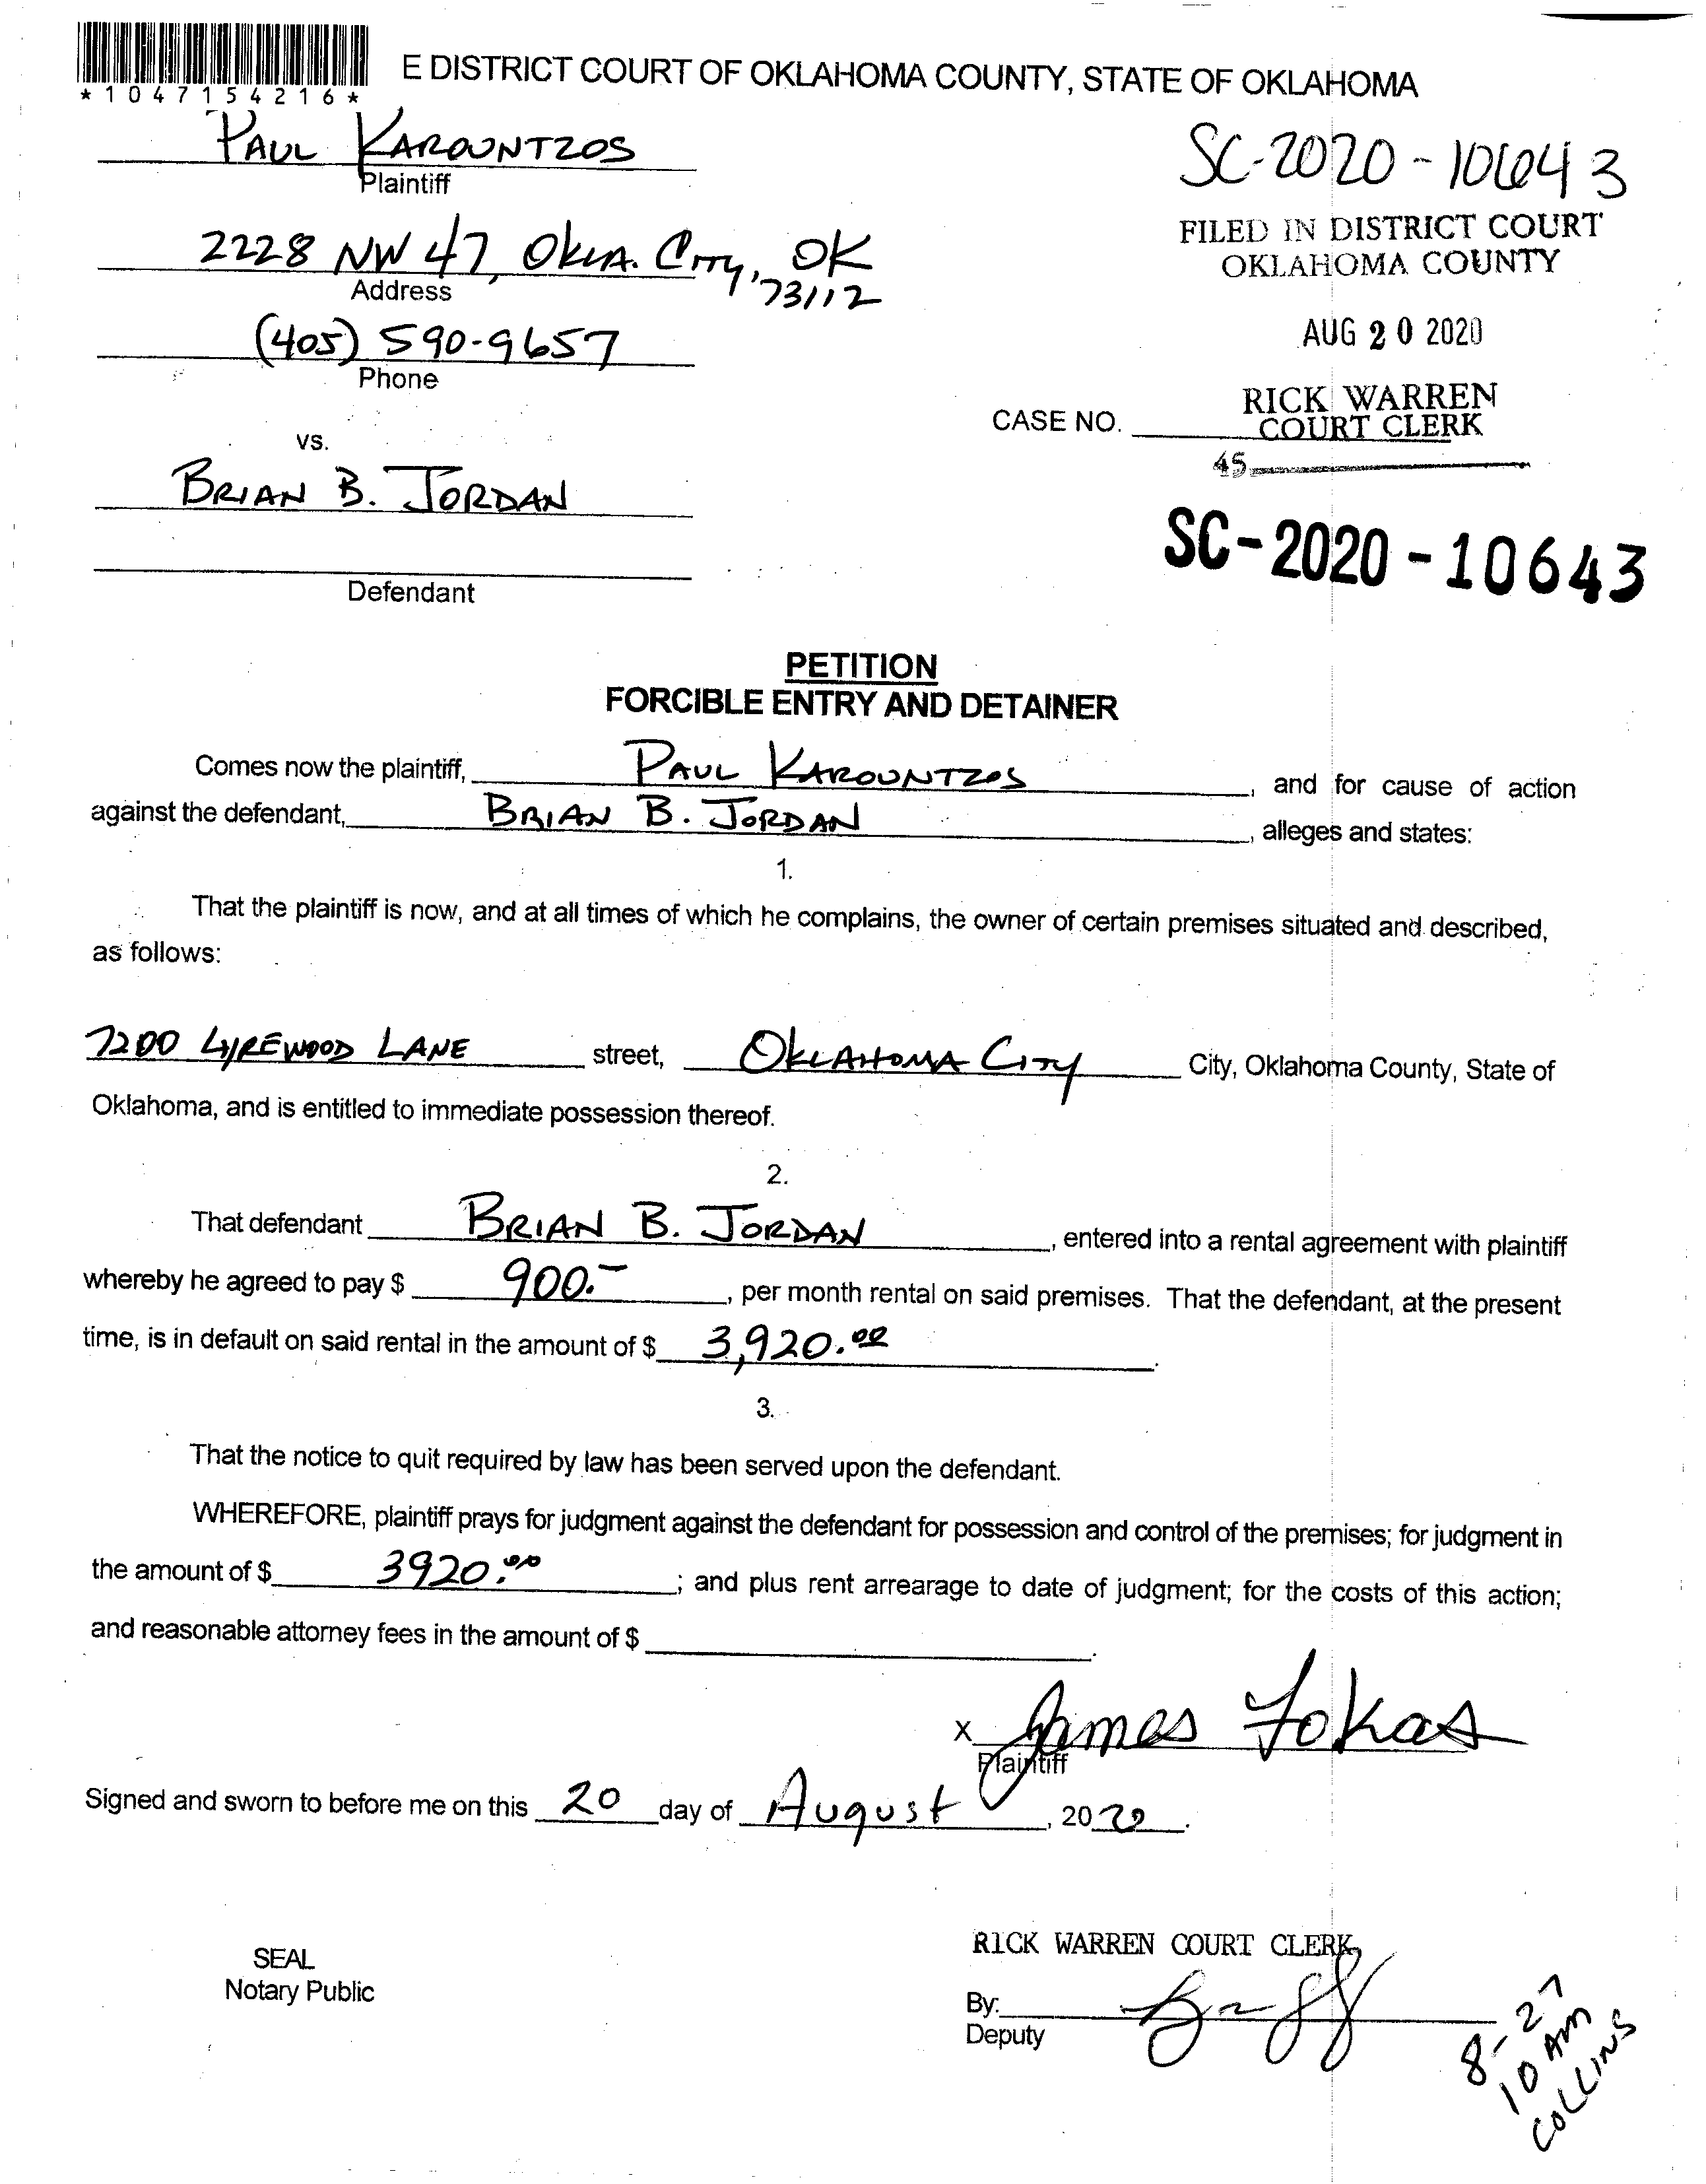 E DISTRICT COURT OF OKLAHOMA COUNTY, STATE OF OKLAHOMA
*1047154216*
PAUL KAROUNTZOS
Plaintiff
SC-2020-10643
2228 NW 47, OKLA. CITY, OK
73112
Address
FILED IN DISTRICT COURT
OKLAHOMA COUNTY
(405) 590-9657
Phone
AUG 20 2020
RICK WARREN
CASE NO. COURT CLERK
45
vs.
BRIAN B. JORDAN
Defendant
SC-2020-10643
PETITION
FORCIBLE ENTRY AND DETAINER
Comes now the plaintiff, PAUL KAROUNTZOS, and for cause of action
against the defendant, BRIAN B. JORDAN, alleges and states:
1.
That the plaintiff is now, and at all times of which he complains, the owner of certain premises situated and described,
as follows:
7200 LYREWOOD LANE street, OKLAHOMA CITY City, Oklahoma County, State of
Oklahoma, and is entitled to immediate possession thereof.
2.
That defendant BRIAN B. JORDAN, entered into a rental agreement with plaintiff
whereby he agreed to pay $ 900.-, per month rental on said premises. That the defendant, at the present
time, is in default on said rental in the amount of $ 3,920.00.
3.
That the notice to quit required by law has been served upon the defendant.
WHEREFORE, plaintiff prays for judgment against the defendant for possession and control of the premises; for judgment in
the amount of $ 3920.00; and plus rent arrearage to date of judgment; for the costs of this action;
and reasonable attorney fees in the amount of $ .
X James Fokas
Plaintiff
Signed and sworn to before me on this 20 day of August, 2020.
SEAL
Notary Public
RICK WARREN COURT CLERK
By:
Deputy
8-27
10 AM
COLLINS